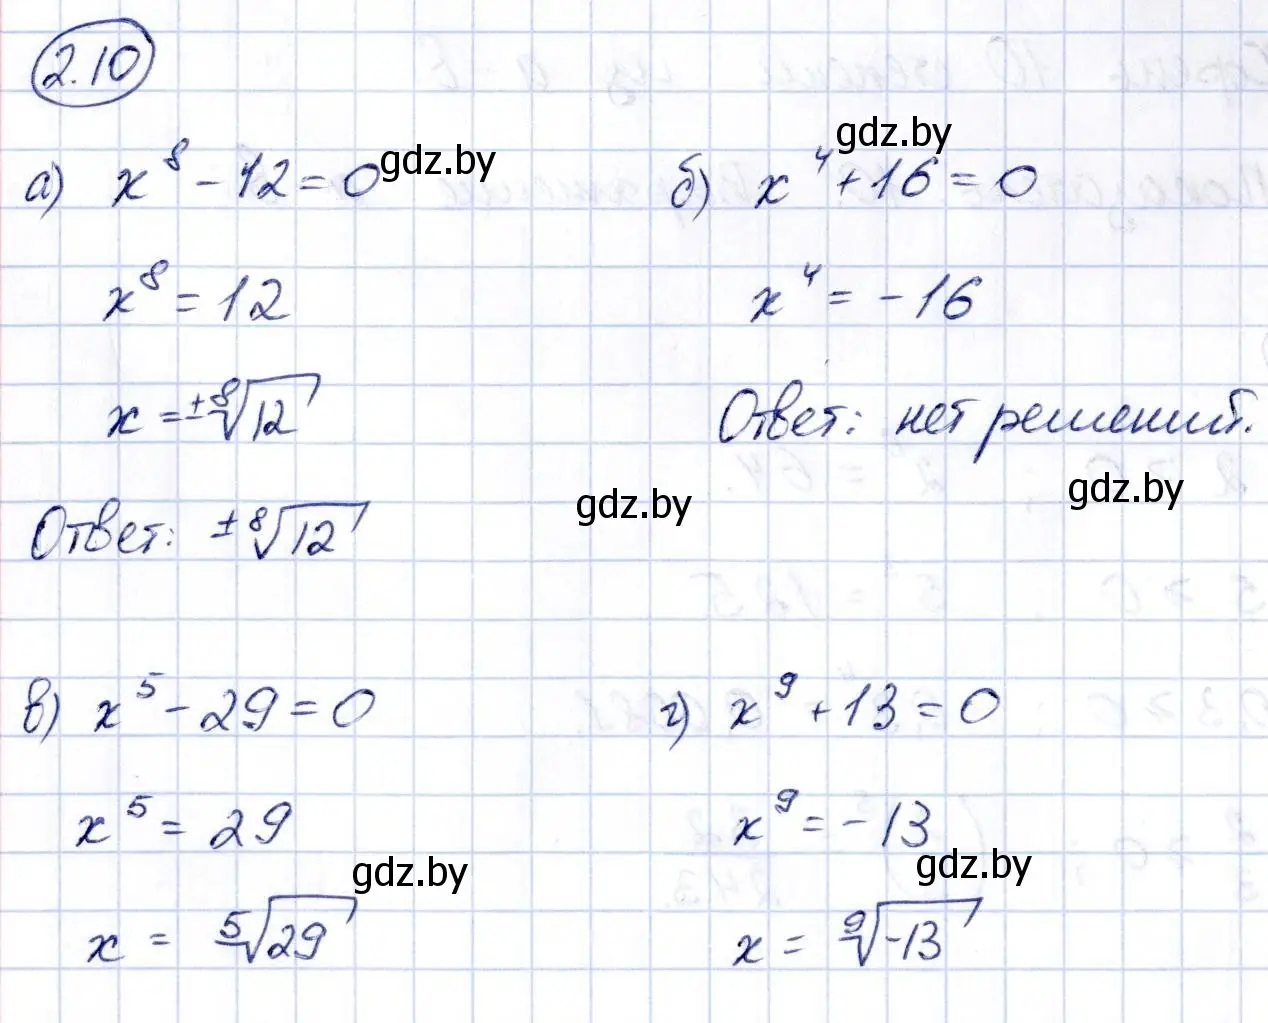 2.10
а) x⁸ - 12 = 0
x⁸ = 12
x = ±⁸√12
Ответ: ±⁸√12
б) x⁴ + 16 = 0
x⁴ = -16
Ответ: нет решений.
в) x⁵ - 29 = 0
x⁵ = 29
x = ⁵√29
г) x⁹ + 13 = 0
x⁹ = -13
x = ⁹√-13
gdz.by
gdz.by
gdz.by
gdz.by
gdz.by
gdz.by